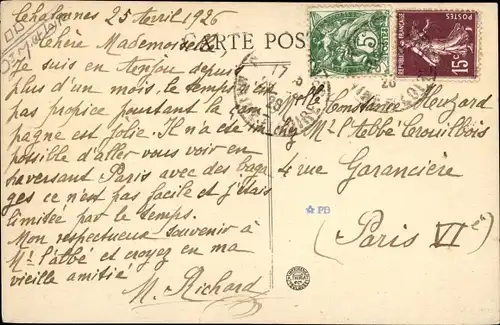 Chalonnes 25 Avril 1926
CARTE POS
Chère Mademoiselle
Je suis en Anjou depuis
plus d'un mois, le temps est
pas propice pourtant la cam
pagne est jolie. Il m'a été im
possible d'aller vous voir en
traversant Paris avec des baga
ges ce n'est pas facile et j'étais
limitée par le temps.
Mon respectueux souvenir à
Mr l'abbé et croyez en ma
vieille amitié
M. Richard
5
POSTES
REPUBLIQUE FRANÇAISE
15c
Mlle Constance Heuzard
chez Mr l'Abbé Crouilbois
4 rue Garancière
Paris VI
PB